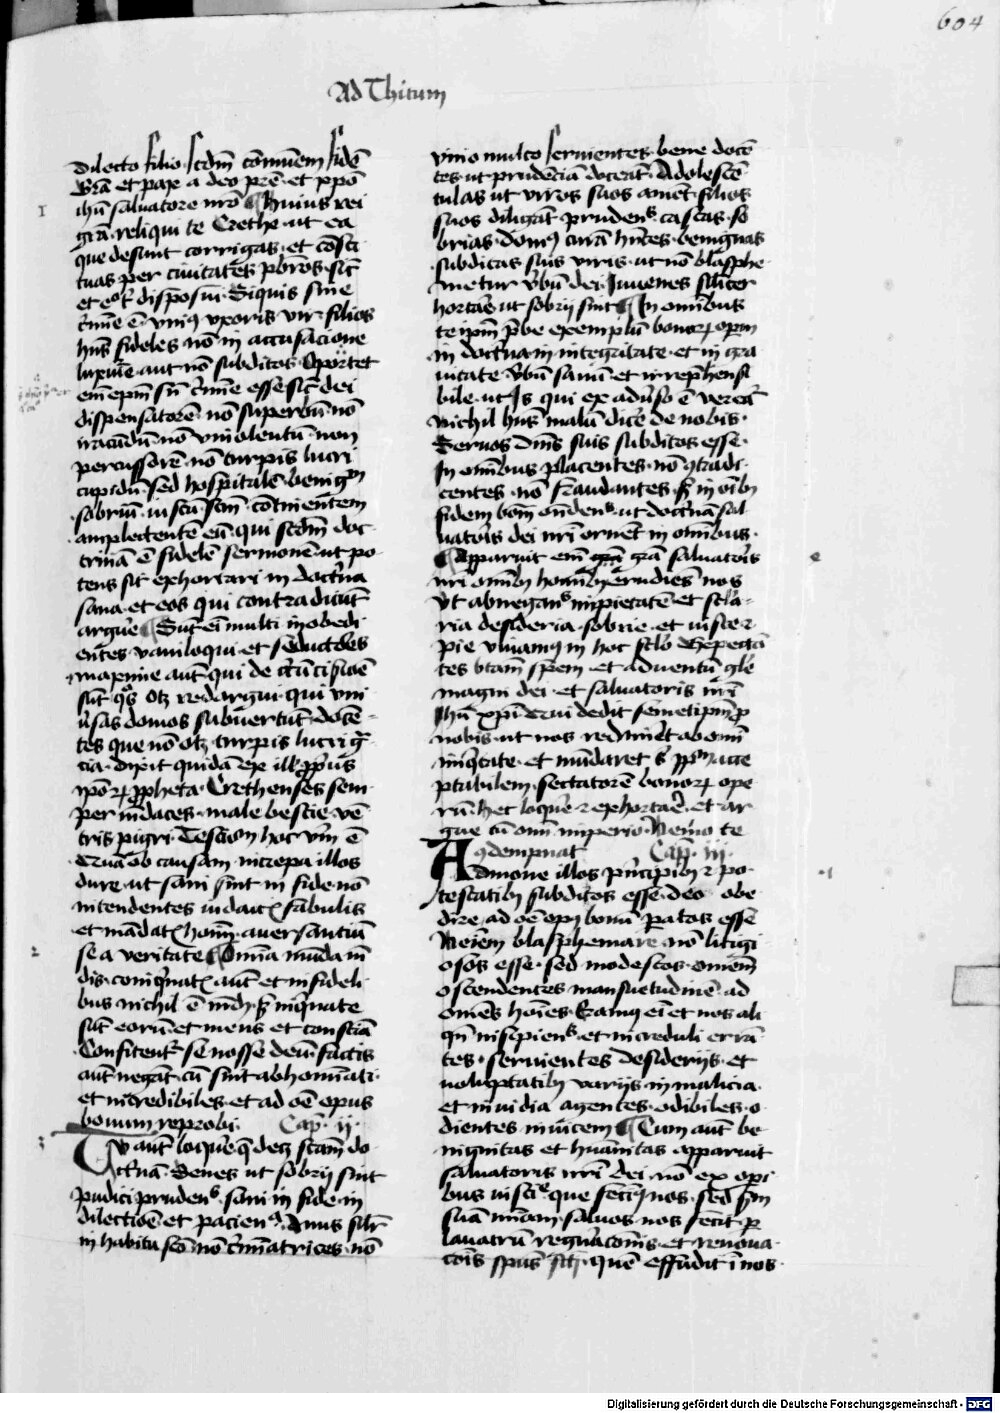 604
Ad Thitum
dilecto filio scdm cōmunem fidē
Grā et pax a deo prē et xpo
ihū saluatore nrō Huius rei
grā reliqui te Crethe ut ea
que desunt corrigas et cōsti
tuas per ciuitates pbros sic̄
et ego disposui Siquis sine
crimine ē vniꝰ vxoris vir filios
hns fideles nō in accusacione
luxurie aut nō subditos Oportet
em epm sn crimine esse sicut dei
dispensatorē nō superbū nō
iracūdū nō vinolentū non
percussorē nō turpis lucri
cupidū sed hospitalē benignū
sobriū iustū scm cōtinentem
amplectentē eū qui scdm doc
trinā ē fidelē sermonē ut po
tens sit exhortari in doctrina
sana et eos qui contradicūt
arguere Sūt ei multi inobedi
entes vaniloqui et seductores
maxime aut qui de circūcisione
sūt quos otꝫ redargui qui vni
uersas domos subuertūt docē
tes que nō otꝫ turpis lucri gra
cia dixit quidā ex illis ppriꝰ
ipoꝝ ppheta Crethenses sem
per mēdaces male bestie vē
tris pigri Testioīm hoc verū ē
Quā ob causam increpa illos
dure ut sani sint in fide nō
intendentes iudaicis fabulis
et mādatis hoīm auersantiū
se a veritate Omnia mūda mū
dis coinquinatis aut et infideli
bus nichil ē mūdū sꝫ inquinate
sūt eorū et mens et consciā
Confitentur se nosse deū factis
aut negāt cū sint abhominati
et incredibiles et ad oē opus
bonum reprobi Cap ii
Tu aut loquere que decꝫ sanam do
ctrinā Senes ut sobrij sint
pudici prudentes sani in fide in
dilectiōe et paciencia Anus silr
in habitu scō nō criminatrices nō
vino multo seruientes bene docē
tes ut prudēciā doceāt Adolescē
tulas ut viros suos ament filios
suos diligāt prudentes castas so
brias domus curā hntes benignas
subditas suis viris ut nō blasphe
metur verbū dei Iuuenes silīter
hortare ut sobrij sint In omibus
te ipm prebe exemplū bonoꝝ operū
in doctrina in integritate et in gra
uitate verbū sanū et irreprehensi
bile ut Is qui ex aduerso ē vereatur
nichil hns malū dicere de nobis
Seruos dnis suis subditos esse
In omibus placentes nō cōtradi
centes nō fraudantes sꝫ in oibꝫ
fidem bonā ondentes ut doctrinā sal
uatoris dei nri ornent in omibus
Apparuit em grā saluatoris
nri omibꝫ hominibꝫ erudiēs nos
vt abnegantes impietatē et scla
ria desideria sobrie et iuste ⁊
pie viuamꝰ in hoc sclo Expectā
tes btam spem et aduentū glē
magni dei et saluatoris nri
Ihū xpi Qui dedit semetipm p
nobis ut nos redimeret ab omi
iniqtate et mūdaret sibi pplm acce
ptabilem sectatorē bonoꝝ ope
rū Hec loquere ⁊ exhortare et ar
gue cū omi imperio Nemo te
cōdempnat Cap iii
Admone illos principibꝫ ⁊ po
testatibꝫ subditos esse deo obe
dire ad oē opꝰ bonū paratos esse
Neīem blasphemare nō litigi
osos esse sed modestos omem
ostendentes mansuetudinē ad
omes hoies Eramꝰ ei et nos ali
qn insipientes et increduli errā
tes seruientes desiderijs et
voluptatibꝫ varijs in malicia
et inuidia agentes odibiles o
dientes inuicem Cum aut be
nignitas et huanitas apparuit
saluatoris nri dei nō ex opi
bus iusticie que fecimꝰ nos sed scdm
suā miam saluos nos fecit p
lauatrū regeneracionis et renoua
cois spūs sci quē effudit ī nos
Digitalisierung gefördert durch die Deutsche Forschungsgemeinschaft - DFG